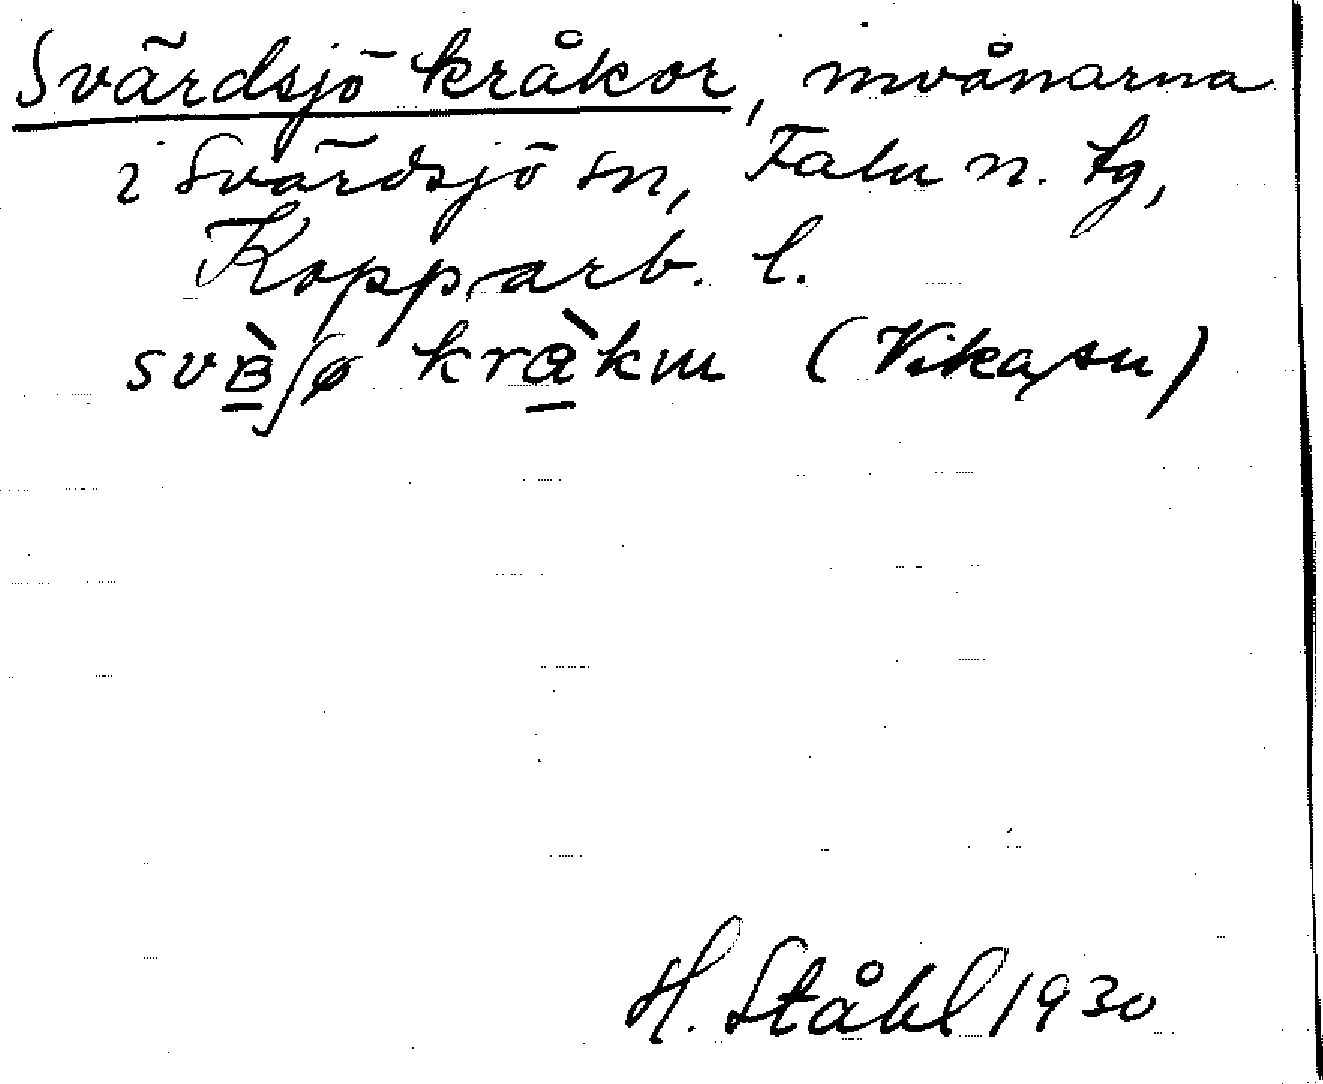 Svärdsjö kråkor, invånarna
i Svärdsjö sn, Falu n. tg,
Kopparb. l.
(Vika sn)
H. Ståhl 1930